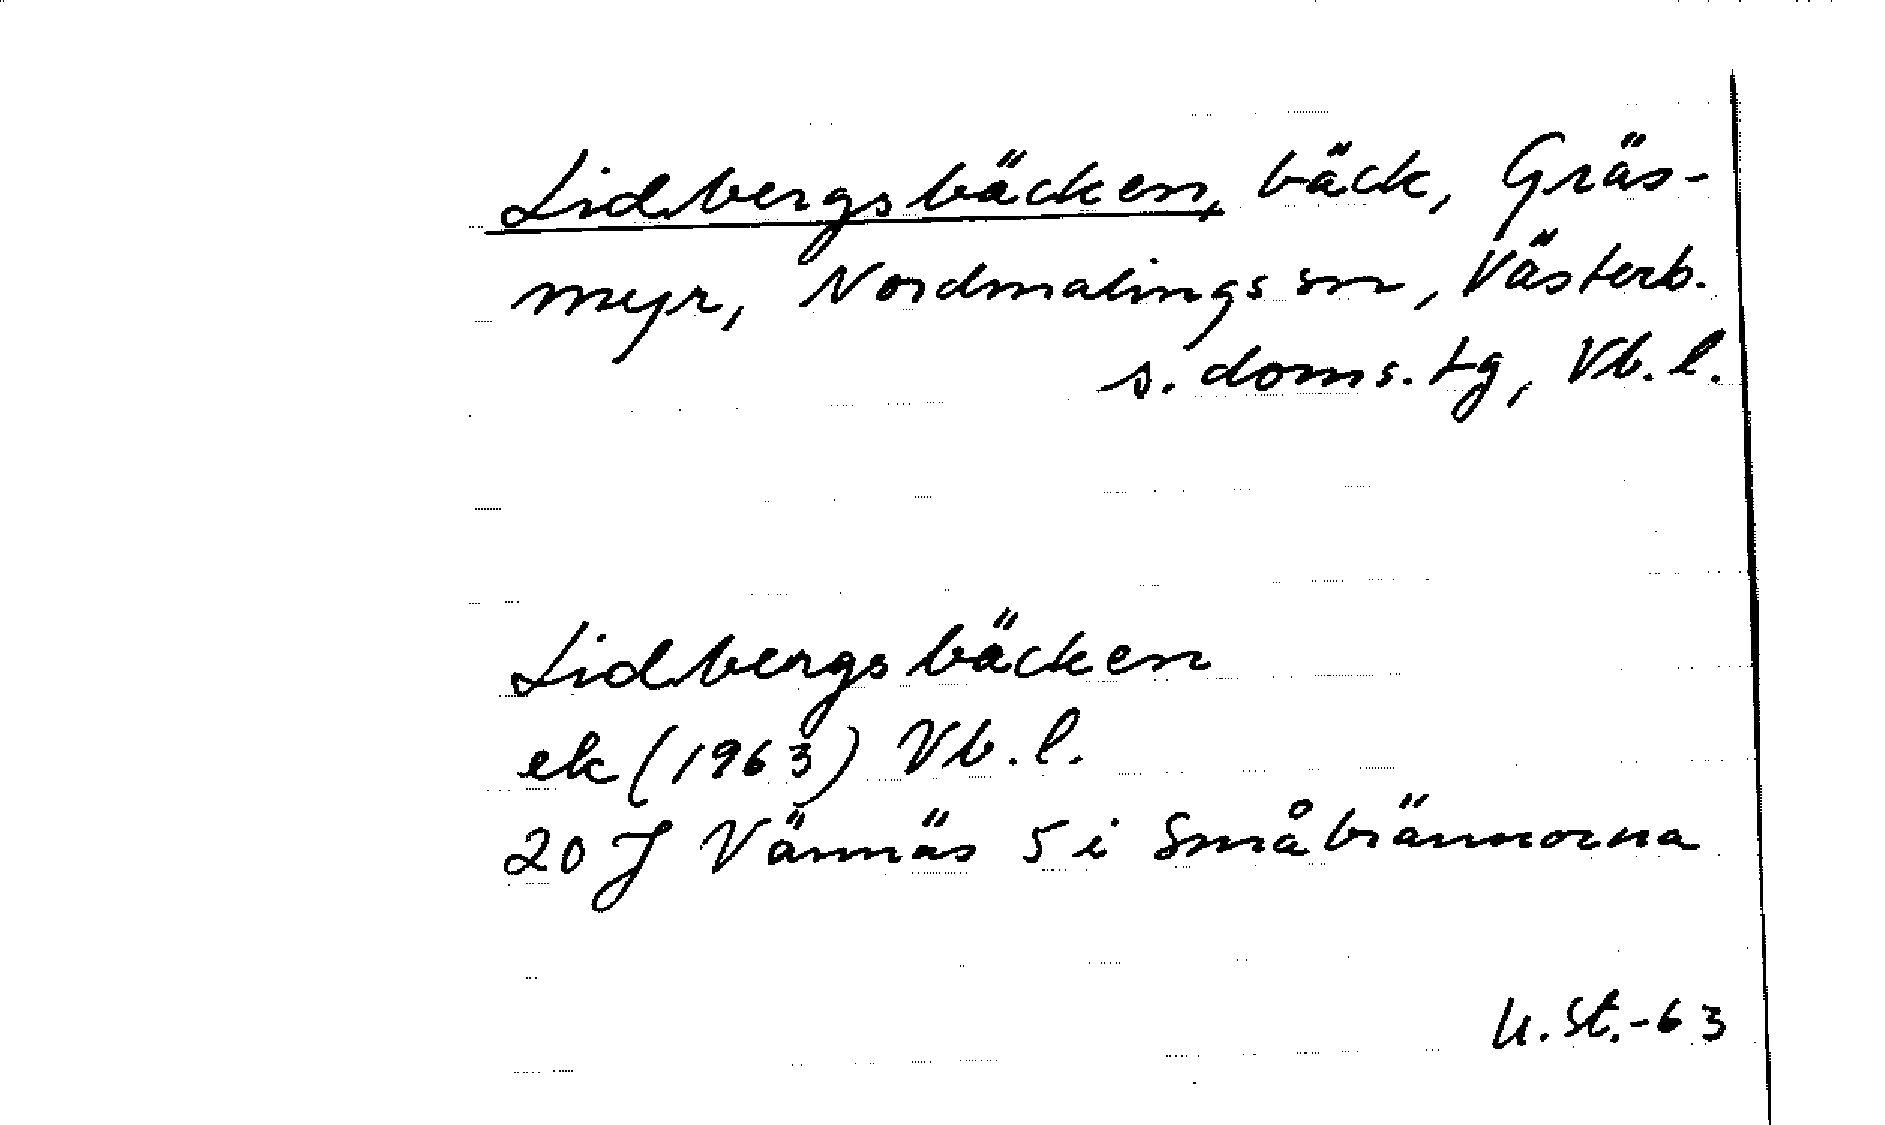 Lidbergsbäcken, bäck, Gräs-
myr, Nordmalings sn, Västerb.
s. doms. tg, Vb. l.
Lidbergsbäcken
ek (1963) Vb. l.
20 J Vännäs 5 i Småbrännorna
U. St. -63